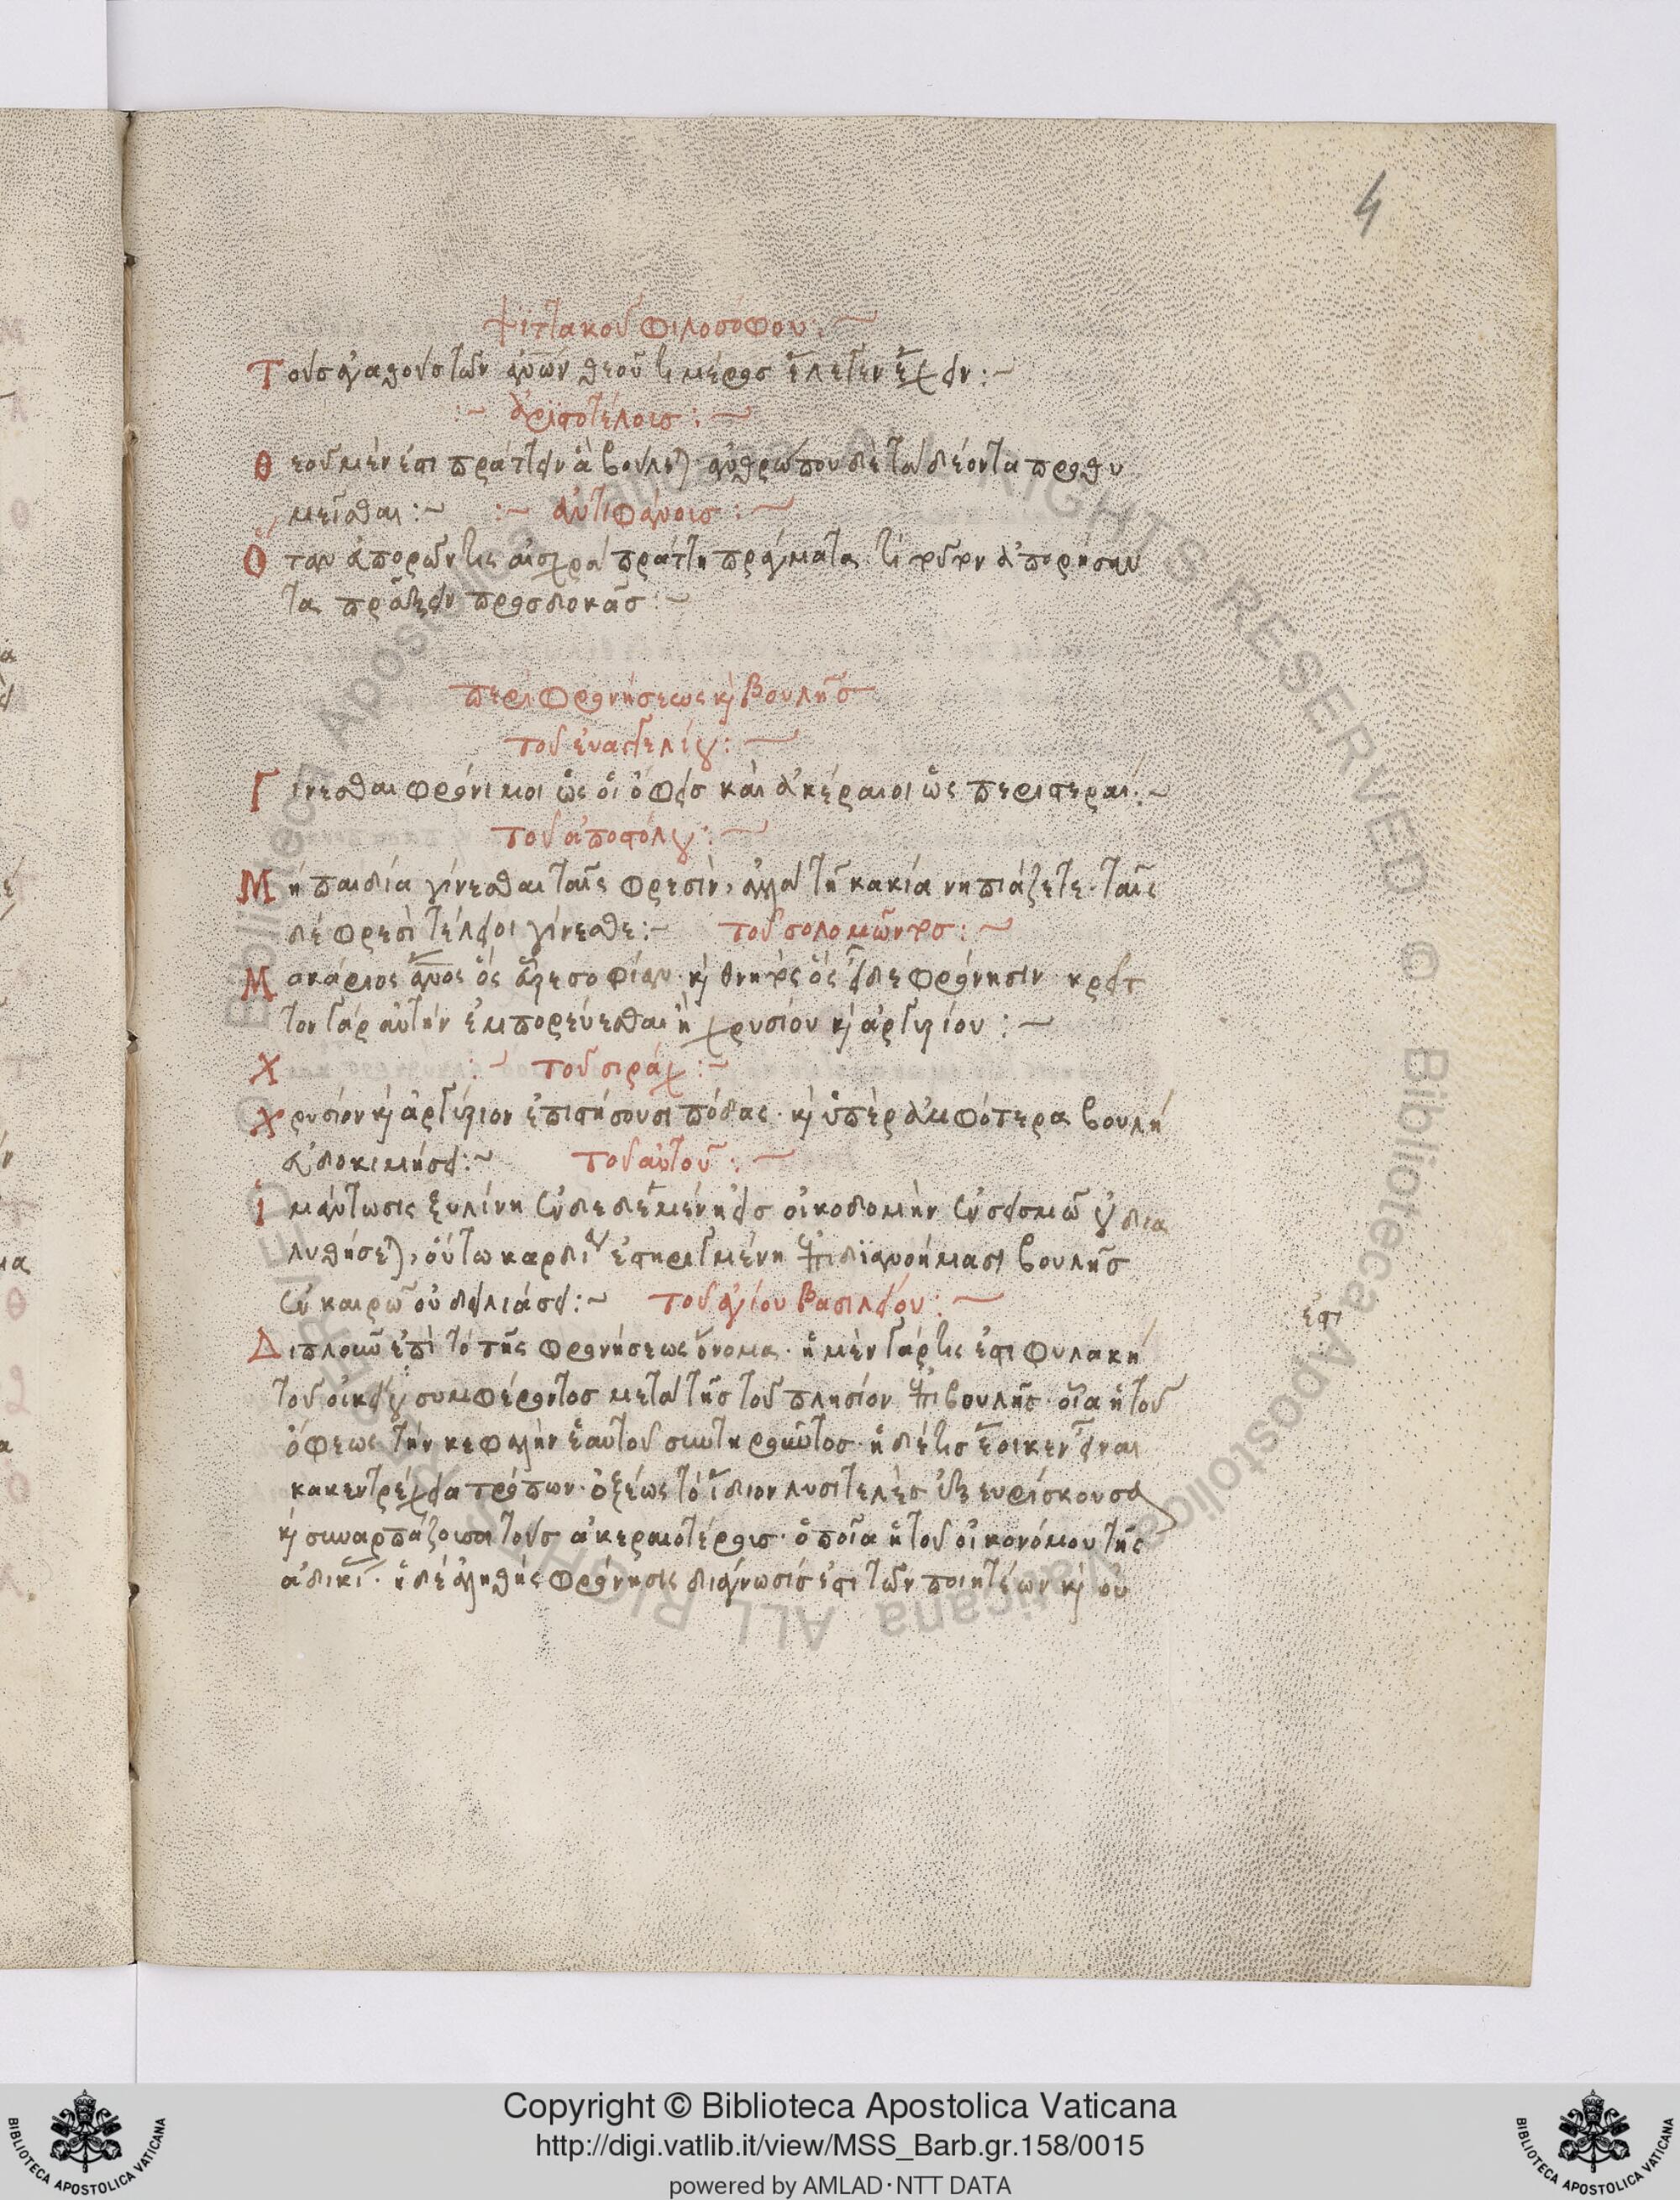 4
ψιττακοῦ φιλοσόφου:~
Τοὺς ἀγαθοὺς τῶν ἀνῶν θεοῦ τι μέρος ἔλεγεν ἔχειν:~
:~ ἀριστοτέλους:~
Θεοῦ μέν ἐστι πράττειν ἃ βούλεται· ἀνθρώπου δὲ τὰ δέοντα προθυ
μεῖσθαι:~ :~ ἀντιφάνους:~
Ὅταν ἀπορῶν τις αἰσχρὰ πράττῃ πράγματα τί τοῦτον ἀπορήσαν
τα πράξειν προσδοκᾶς:~
περὶ φρονήσεως κὶ βουλῆς
τοῦ εὐαγγελίου:~
Γίνεσθαι φρόνιμοι ὡς οἱ ὄφεις καὶ ἀκέραιοι ὡς περιστεραί:~
τοῦ ἀποστόλου:~
Μὴ παιδία γίνεσθαι ταῖς φρεσὶν, ἀλλὰ τῇ κακία νηπιάζετε· ταῖς
δὲ φρεσὶ τέλειοι γίνεσθε:~ τοῦ σολομῶντος:~
Μακάριος ἄνος ὃς εὗρε σοφίαν· κὶ θνητὸς ὃς εἶδε φρόνησιν κρεῖτ
τον γὰρ αὐτὴν ἐμπορεύεσθαι ἢ χρυσίον κὶ ἀργυρίου:~
Χ :~ τοῦ σιράχ:~
Χρυσίον κὶ ἀργύριον ἐπιστήσουσι πόδας· κὶ ὑπὲρ ἀμφότερα βουλὴ
εὐδοκιμήσει:~ τοῦ αὐτοῦ:~
Ἱμάντωσις ξυλίνη ἐνδεδεμένη εἰς οἰκοδομὴν ἐν σεισμῶ οὐ δια
λυθήσεται, οὕτω καρδία ἐστηριγμένη ἐπὶ διανοήμασι βουλῆς
ἐν καιρῶ οὐ δειλιάσει:~ τοῦ ἁγίου βασιλείου:~
Διπλοῦν ἐπὶ τὸ τῆς φρονήσεως ὄνομα· ἡ μὲν γάρ τις ἐστι φυλακὴ
τοῦ οἰκείου συμφέροντος μετὰ τῆς τοῦ πλησίον ἐπιβουλῆς· οἵα ἡ τοῦ
ὄφεως τὴν κεφαλὴν ἑαυτοῦ συντηροῦντος· ἡ δέ τις ἔοικεν εἶναι
κακεντρέχεια τρόπων· ὀξέως τὸ ἴδιον λυσιτελὲς ἐξευρίσκουσα
κὶ συναρπάζουσα τοὺς ἀκεραιοτέρους· ὁποῖα ἡ τοῦ οἰκονόμου τῆς
ἀδικί· ἡ δὲ ἀληθὴς φρόνησις διάγνωσίς ἐστι τῶν ποιητέων κὶ οὐ
ἐστι
© Biblioteca Apostolica Vaticana ALL RIGHTS RESERVED © Biblioteca Apostolica Vaticana ALL RIGHTS RESERVED
BIBLIOTECA APOSTOLICA VATICANA
Copyright © Biblioteca Apostolica Vaticana
http://digi.vatlib.it/view/MSS_Barb.gr.158/0015
powered by AMLAD·NTT DATA
BIBLIOTECA APOSTOLICA VATICANA